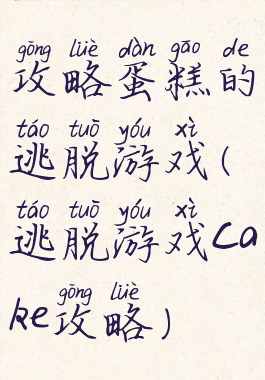 gōng lüè dàn gāo de
攻略蛋糕的
táo tuō yóu xì
逃脱游戏(
táo tuō yóu xì
逃脱游戏ca
gōng lüè
ke攻略)